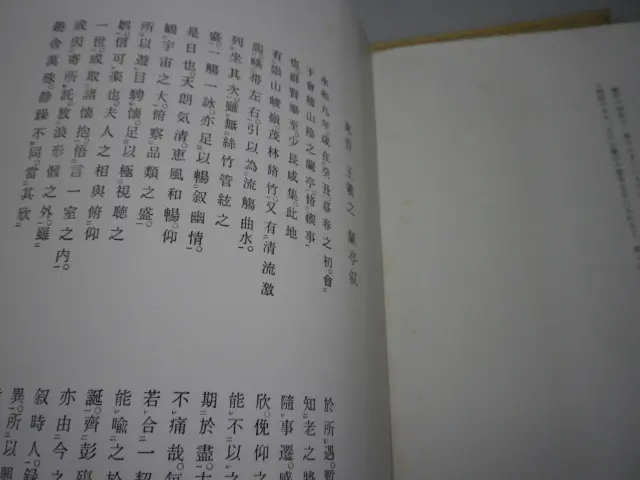 東晉 王羲之 蘭亭叙
永和九年歲在癸丑暮春之初。會
于會稽山陰之蘭亭。脩禊事
也。群賢畢至少長咸集。此地
有崇山峻嶺茂林脩竹。又有清流激
湍映帶左右。引以為流觴曲水。
列坐其次。雖無絲竹管絃之
盛。一觴一詠亦足以暢叙幽情。
是日也。天朗氣清。惠風和暢。仰
觀宇宙之大。俯察品類之盛。
所以遊目騁懷。足以極視聽之
娯。信可樂也。夫人之相與俯仰
一世。或取諸懷抱。悟言一室之內。
或因寄所託。放浪形骸之外。雖
趣舎萬殊。静躁不同。當其欣
於所遇。暫
知老之將
隨事遷。感
欣。俛仰之
能不以之
期於盡。古
不痛哉。每
若合一契
能喩之於
誕。齊彭殤
亦由今之
叙時人。錄
異。所以興